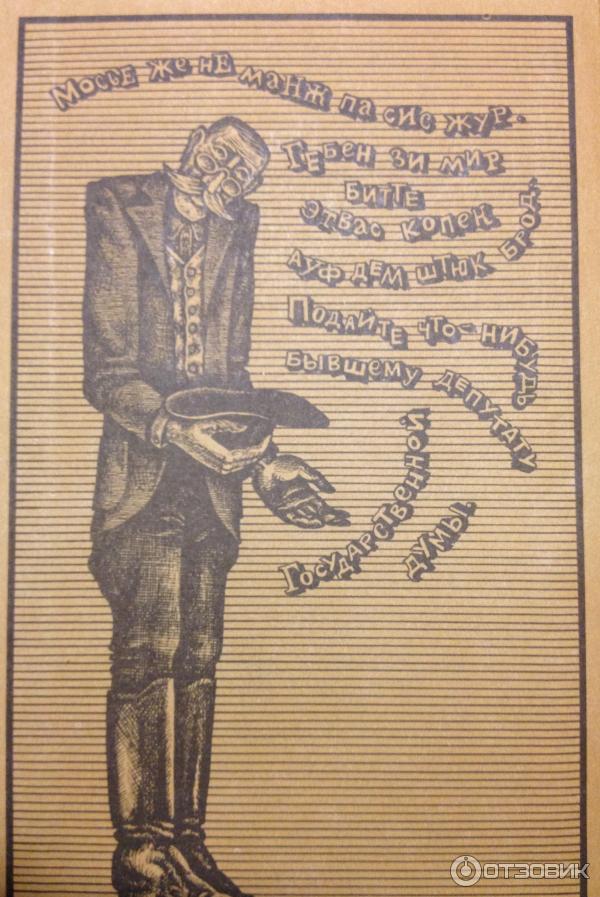 Мосье же не манж па сис жур.
Гебен зи мир
битте
этвас копек
ауф дем штюк брод.
Подайте что-нибудь
бывшему депутату
Государственной
думы.
ОТЗОВИК